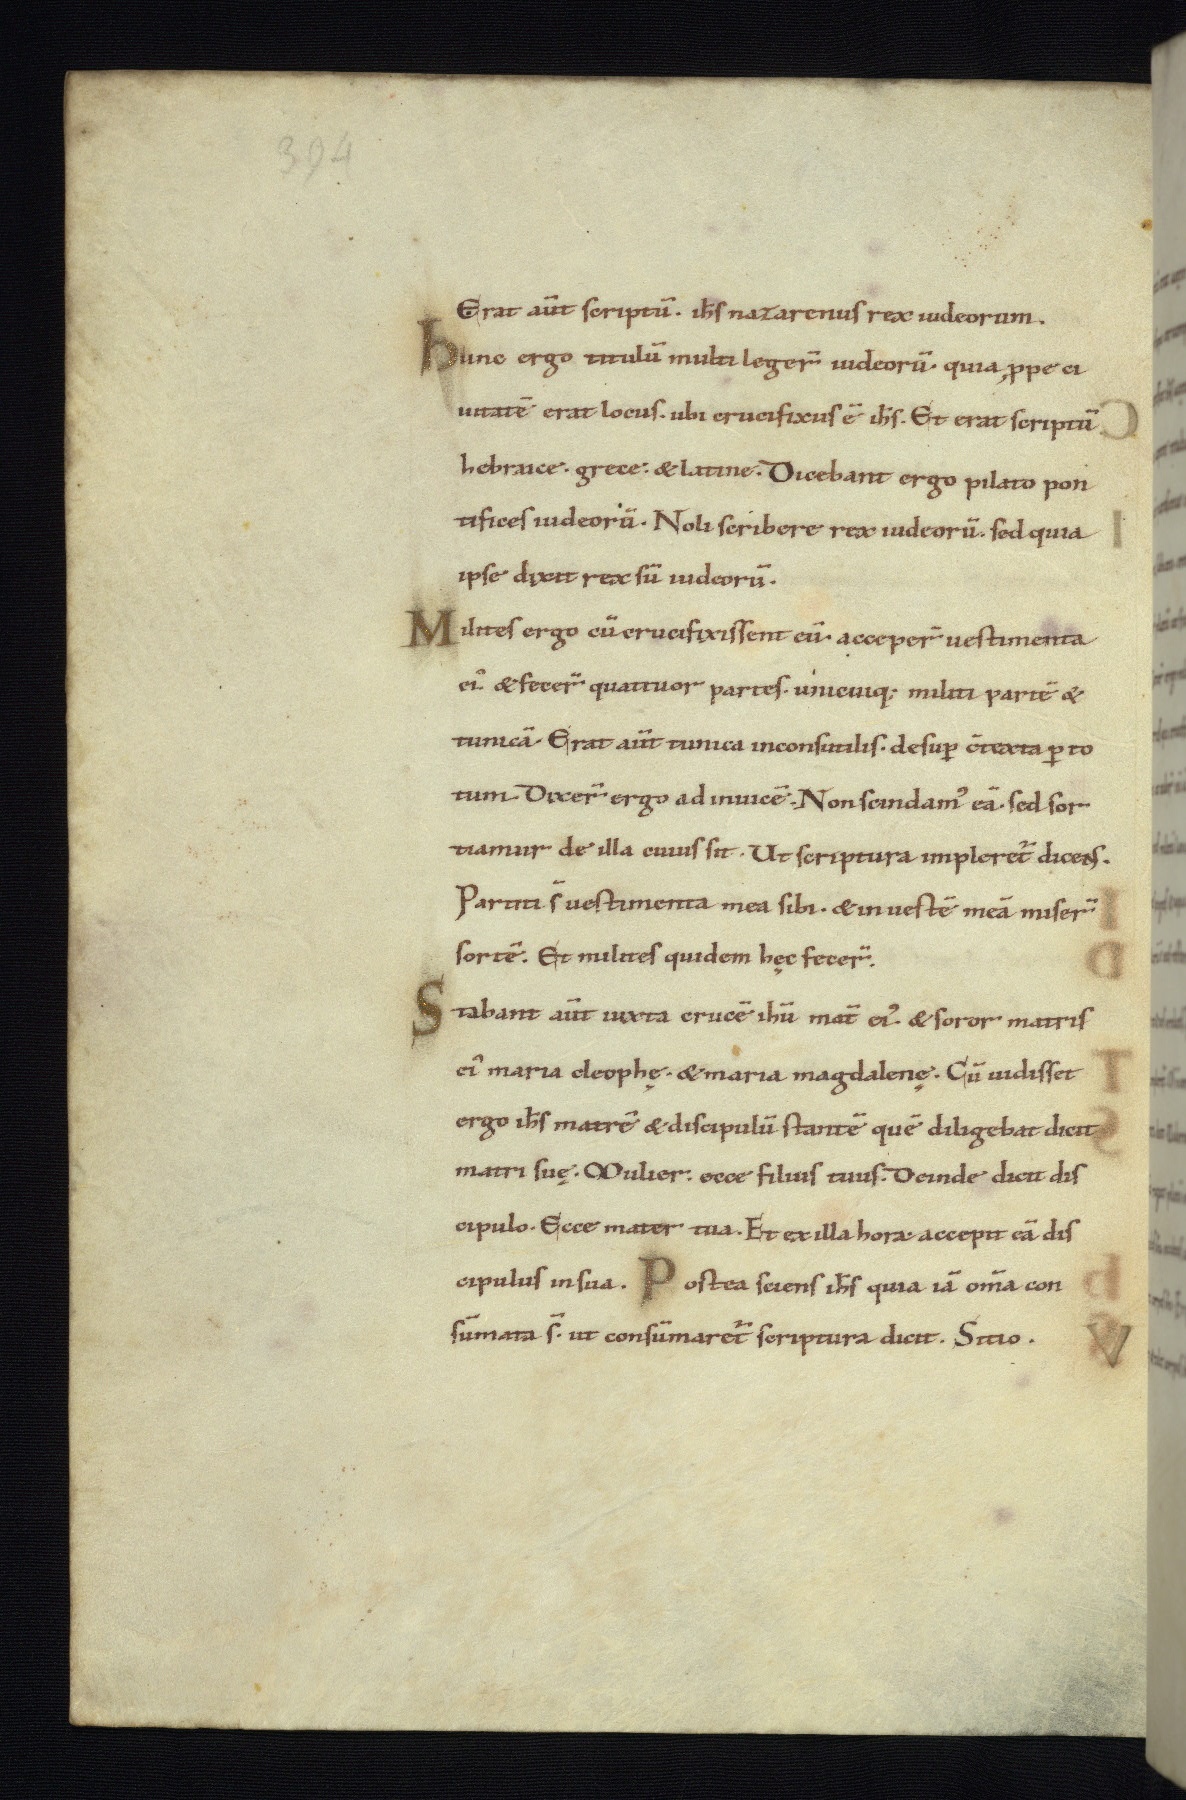 394
Erat aūt scriptū. ih̄s nazarenus rex iudeorum.
hunc ergo titulū multi leger̄ iudeorū. quia ꝓpe ci
uitatē erat locus. ubi crucifixus ē ih̄s. Et erat scriptū
hebraice. grece. & latine. Dicebant ergo pilato pon
tifices iudeorū. Noli scribere rex iudeorū. sed quia
ipse dixit rex sū iudeorū.
Milites ergo cū crucifixissent eū. acceper̄ uestimenta
ei᾽. & fecer̄ quattuor partes. unicuiq; militi partē &
tunicā. Erat aūt tunica inconsutilis. desuꝑ c̄texta ꝑ to
tum. Dixer̄ ergo ad inuicē. Non scindam᾽ eā. sed sor
tiamur de illa cuius sit. Ut scriptura impleret᷑ dicens.
Partiti s̄ uestimenta mea sibi. & in uestē meā miser̄
sortē. Et milites quidem hęc fecer̄.
Stabant aūt iuxta crucē ihū mat̄ ei᾽. & soror matris
ei᾽ maria cleophę. & maria magdalenę. Cū uidisset
ergo ih̄s matrē & discipulū stantē quē diligebat dicit
matri suę. Mulier. ecce filius tuus. Deinde dicit dis
cipulo. Ecce mater tua. Et ex illa hora accepit eā dis
cipulus in sua. Postea sciens ih̄s quia iā om̄a con
sūmata s̄. ut consūmaret᷑ scriptura dicit. Sitio.